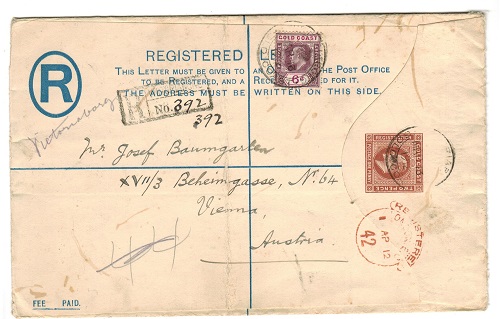 REGISTERED LE
THIS LETTER MUST BE GIVEN TO AN OF THE POST OFFICE
TO BE REGISTERED, AND A RECE FOR IT.
THE ADDRESS MUST BE WRITTEN ON THIS SIDE.
R
GOLD COAST
6d
R
No. 392
392
Victoriaborg
Mr. Josef Baumgarten
XVII/3 Beheimgasse, No. 64
Vienna,
Austria.
TWO PENCE
REGISTERED
AP 12
42
FEE PAID.